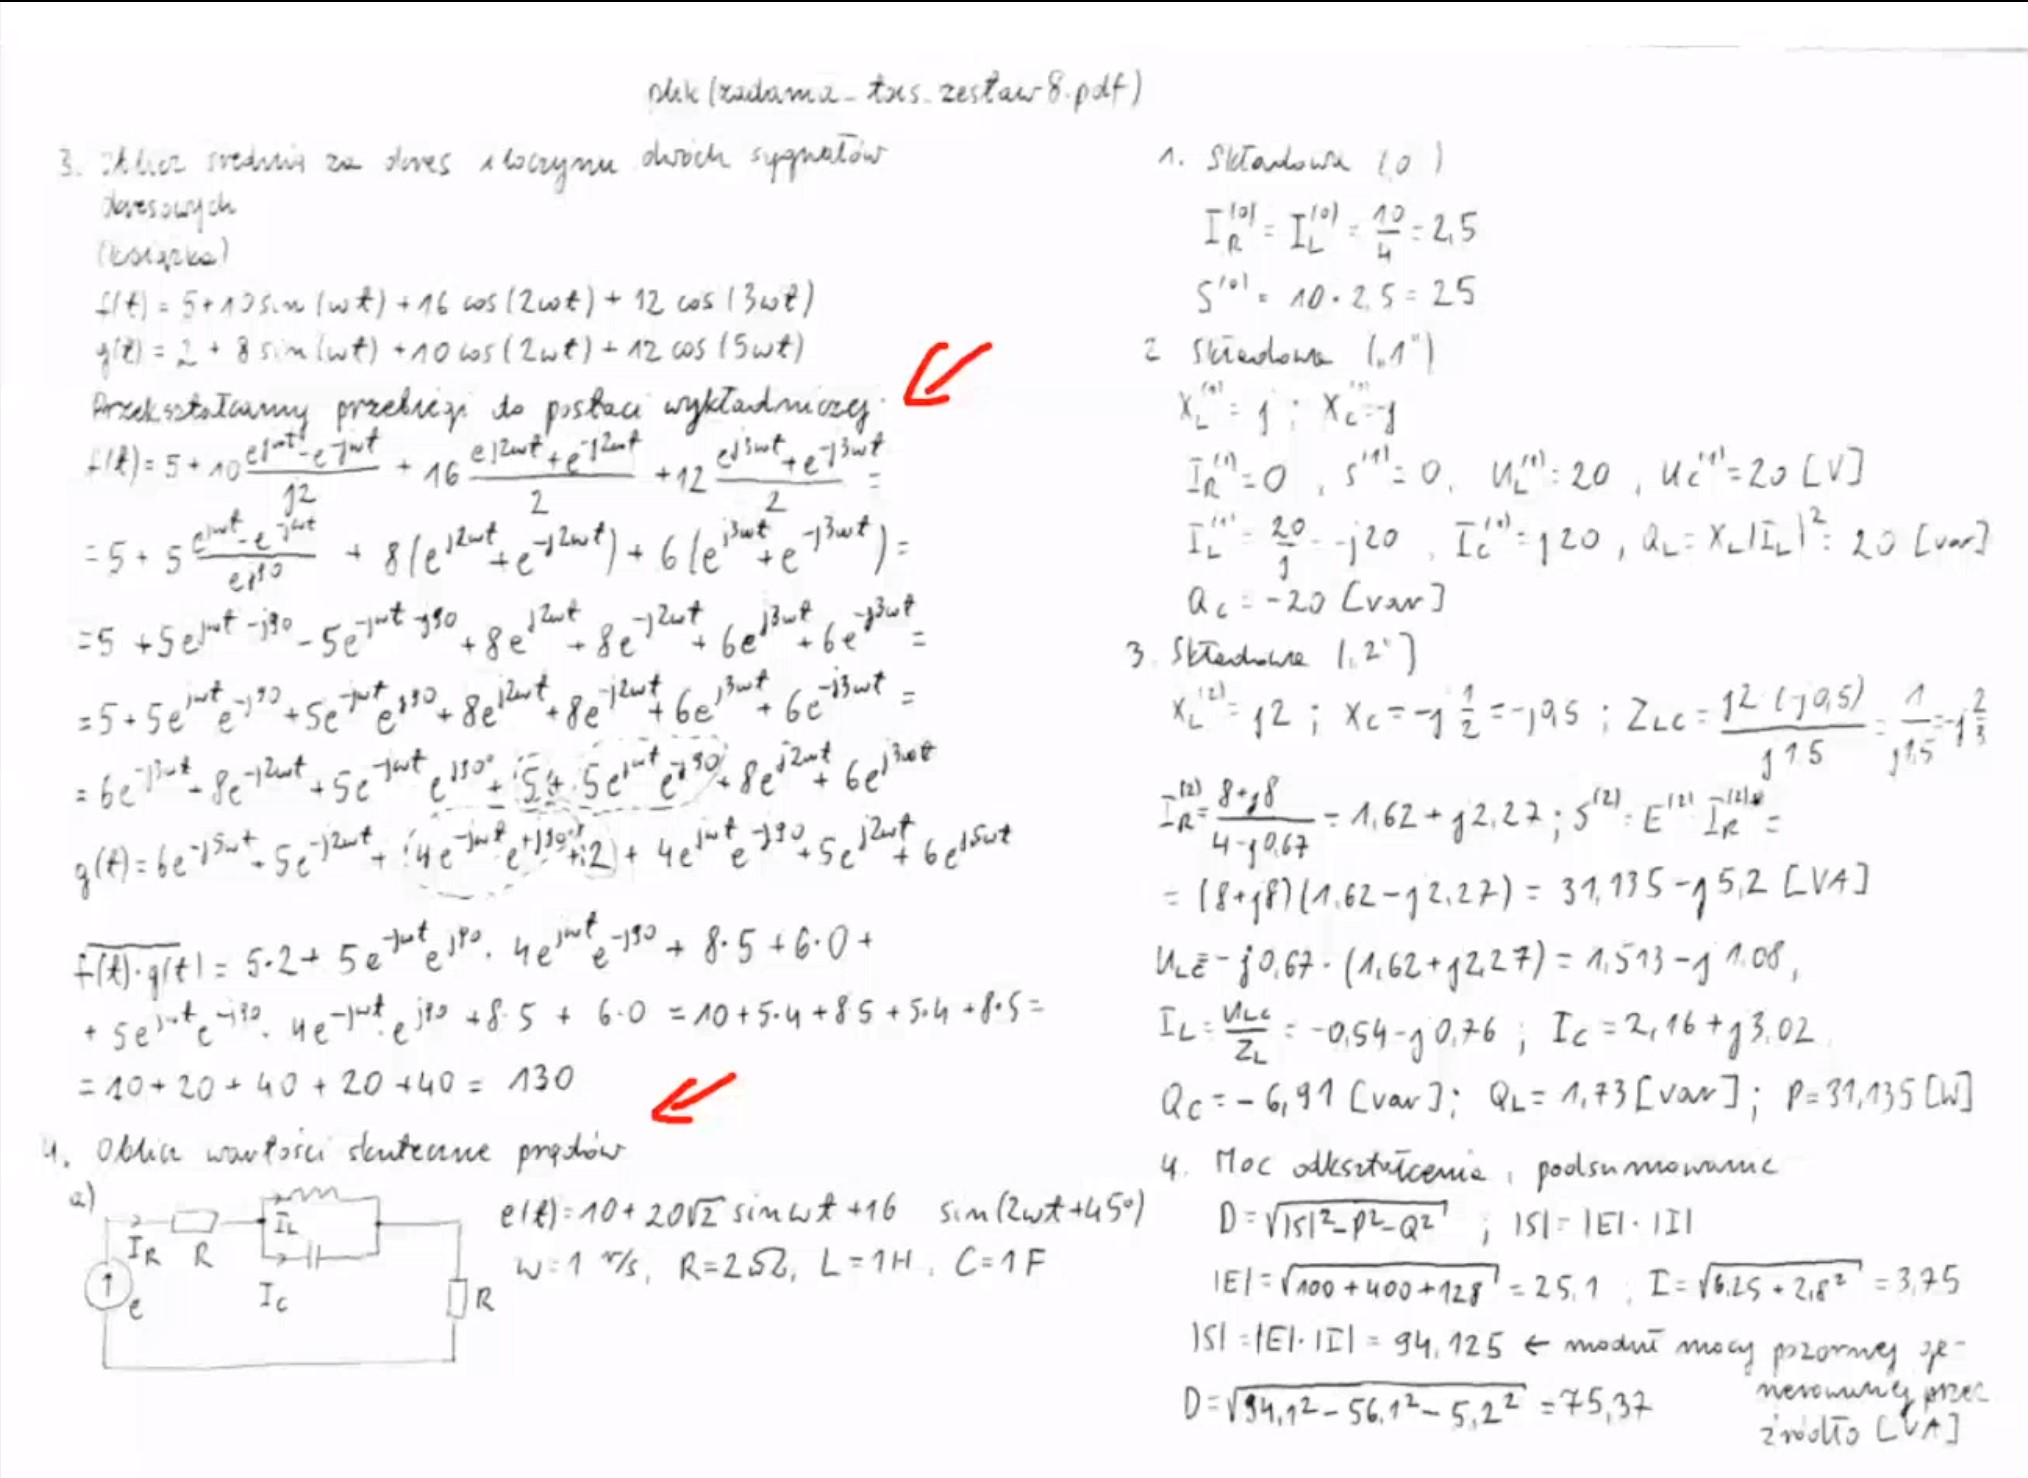 plik (zadania_tois_zestaw 8.pdf)
3. Oblicz średnią za okres iloczynu dwóch sygnałów
okresowych
(książka)
f(t) = 5+10 sin(ωt) + 16 cos(2ωt) + 12 cos(3ωt)
g(t) = 2 + 8 sin(ωt) + 10 cos(2ωt) + 12 cos(5ωt)
Przekształcamy przebiegi do postaci wykładniczej:
f(t) = 5 + 10 (e^{jωt} - e^{-jωt})/j2 + 16 (e^{j2ωt} + e^{-j2ωt})/2 + 12 (e^{j3ωt} + e^{-j3ωt})/2 =
= 5 + 5 (e^{jωt} - e^{-jωt})/e^{j90} + 8(e^{j2ωt} + e^{-j2ωt}) + 6(e^{j3ωt} + e^{-j3ωt}) =
= 5 + 5e^{jωt -j90} - 5e^{-jωt -j90} + 8e^{j2ωt} + 8e^{-j2ωt} + 6e^{j3ωt} + 6e^{-j3ωt} =
= 5 + 5e^{jωt} e^{-j90} + 5e^{-jωt} e^{j90} + 8e^{j2ωt} + 8e^{-j2ωt} + 6e^{j3ωt} + 6e^{-j3ωt} =
= 6e^{-j3ωt} + 8e^{-j2ωt} + 5e^{-jωt} e^{j90°} + 5 + 5e^{jωt} e^{-j90} + 8e^{j2ωt} + 6e^{j3ωt}
g(t) = 6e^{-j5ωt} + 5e^{-j2ωt} + 4e^{-jωt} e^{+j90°} + 2 + 4e^{jωt} e^{-j90} + 5e^{j2ωt} + 6e^{j5ωt}
f(t)·g(t) = 5·2 + 5e^{-jωt} e^{j90} · 4e^{jωt} e^{-j90} + 8·5 + 6·0 +
+ 5e^{jωt} e^{-j90} · 4e^{-jωt} · e^{j90} + 8·5 + 6·0 = 10 + 5·4 + 8·5 + 5·4 + 8·5 =
= 10 + 20 + 40 + 20 + 40 = 130
4. Oblicz wartości skuteczne prądów
a)
I_L
I_R R
I_C
e
R
e(t) = 10 + 20√2 sin ωt + 16 sin(2ωt+45°)
ω=1 r/s, R=2Ω, L=1H, C=1F
1. Składowa (0)
I_R^{(0)} = I_L^{(0)} = 10/4 = 2,5
S^{(0)} = 10·2,5 = 25
2 Składowa („1")
X_L^{(1)} = j ; X_C^{(1)} = -j
I_R^{(1)} = 0, S^{(1)} = 0, U_L^{(1)} = 20, U_C^{(1)} = 20 [V]
I_L^{(1)} = 20/j = -j20, I_C^{(1)} = j20, Q_L = X_L|I_L|² = 20 [var]
Q_C = -20 [var]
3. Składowa („2")
X_L^{(2)} = j2 ; X_C = -j 1/2 = -j0,5 ; Z_LC = j2(-j0,5)/j1.5 = 1/j1,5 = -j 2/3
I_R^{(2)} = (8+j8)/(4-j0,67) = 1,62 + j2,27 ; S^{(2)} = E^{(2)} I_R^{(2)*} =
= (8+j8)(1,62-j2,27) = 31,135 - j5,2 [VA]
U_LC = -j0,67·(1,62+j2,27) = 1,513 - j1.08,
I_L = U_LC/Z_L = -0,54 - j0,76 ; I_C = 2,16 + j3,02
Q_C = -6,91 [var]; Q_L = 1,73 [var]; P = 31,135 [W]
4. Moc odkształcenia, podsumowanie
D = √(|S|² - P² - Q²) ; |S| = |E|·|I|
|E| = √(100+400+128) = 25,1 , I = √(6,25 + 2,8²) = 3,75
|S| = |E|·|I| = 94,125 ← moduł mocy pozornej ge-
nerowanej przez
źródło [VA]
D = √(94,1² - 56,1² - 5,2²) = 75,37